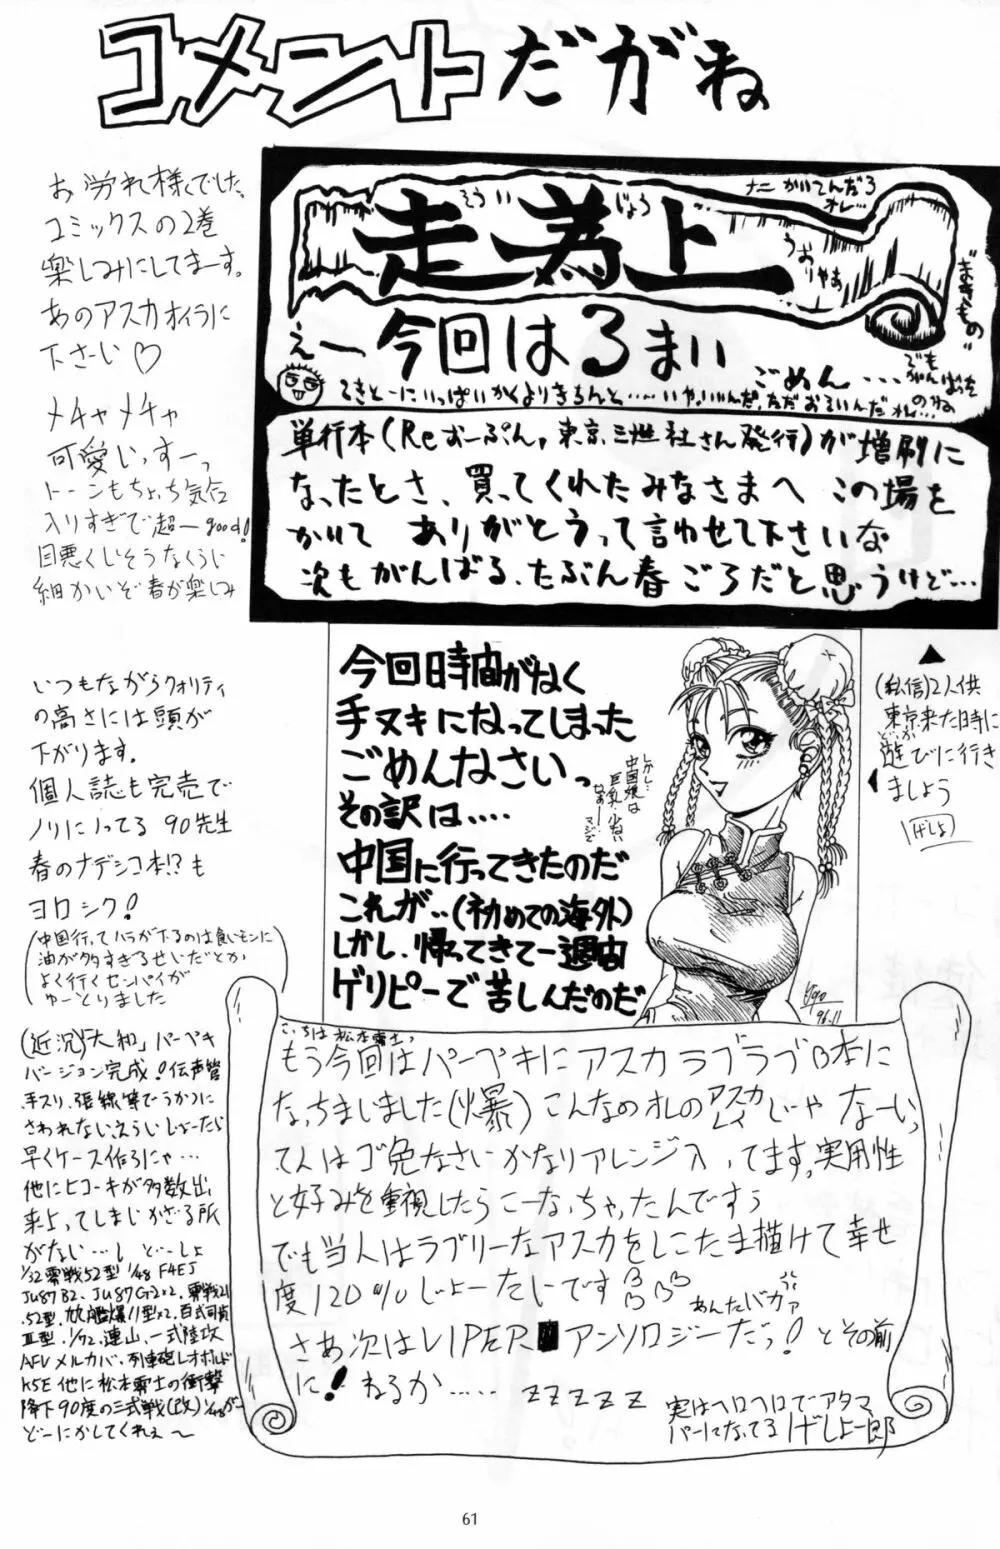 コメントだがね
お労れ様でした、
コミックスの2巻
楽しみにしてまーす。
あのアスカオイラに
下さーい♡
メチャメチャ
可愛いっすーっ
トーンもちょっち気合
入りすぎで超ーgood!
目悪くしそうなくらい
細かいぞ春が楽しみ
ナニかいてんだろ
オレ…
そう い じょう
走為上
うおりゃあ
"まきもの"
えー今回はるまい
ごめん…
でも
がんばった
のね
単行本(Reずーぷん,東京三世社さん発行)が増刷に
なったとさ、買ってくれたみなさまへ この場を
かいて ありがとうって言わせて下さいな
次もがんばる、たぶん春ごろだと思うけど…
いつもながらクォリティ
の高さには頭が
下がります。
個人誌も完売で
ノリにノってる 90先生
春のナデシコ本!?も
ヨロシク!
(中国行ってハラが下るのは食いモンに
油が多すぎるせいだとか
よく行くセンパイが
ゆーとりました)
今回時間がなく
手ヌキになってしまった
ごめんなさいっ
その訳は‥‥
中国に行ってきたのだ
これが‥(初めての海外)
しかし、帰ってきて一週間
ゲリピーで苦しんだのだ
しかし…
中国娘は
巨乳少ない
なぁ…マジで
(私信)2人供
東京来た時に
どっか
遊びに行き
ましょう
げしょ
(近況)「大和」パーペキ
バージョン完成!伝声管
手スリ、張線等でうかつに
さわれないえらいしょーたい
早くケース作ろにゃ…
他にヒコーキが多数出
来上ってしまいかざる所
がない…し どーしよ
1/32零戦52型 1/48 F4EJ
JU87B2、JU87G2×2、零戦21
52型、彗艦爆11型×2、百式司偵
III型、1/72、連山、一式陸攻
AFVメルカバ、列車砲レオポルド
K5E 他に松本零士の衝撃
降下90度の三式戦(改)1/48がー
どーにかしてくれぇ〜
こっちは松本零士、
もう今回はパーペキにアスカラブラブB本に
なっちまいました(爆)こんなのオレのアスカ
じゃ なーいっ
てんはゴ免なさいかなりアレンジ入ってます。実用性
と好みを重視したらこーなっちゃったんですぅ
でも当人はラブリーなアスカをしこたま描けて幸せ
度120%じょーたいです
あんたバカァ
さあ次はVIPERアンソロジーだっ!とその前
に!ねるか…… zzzzz
実はヘロヘロでアタマ
パーになってる げしょ一郎
61